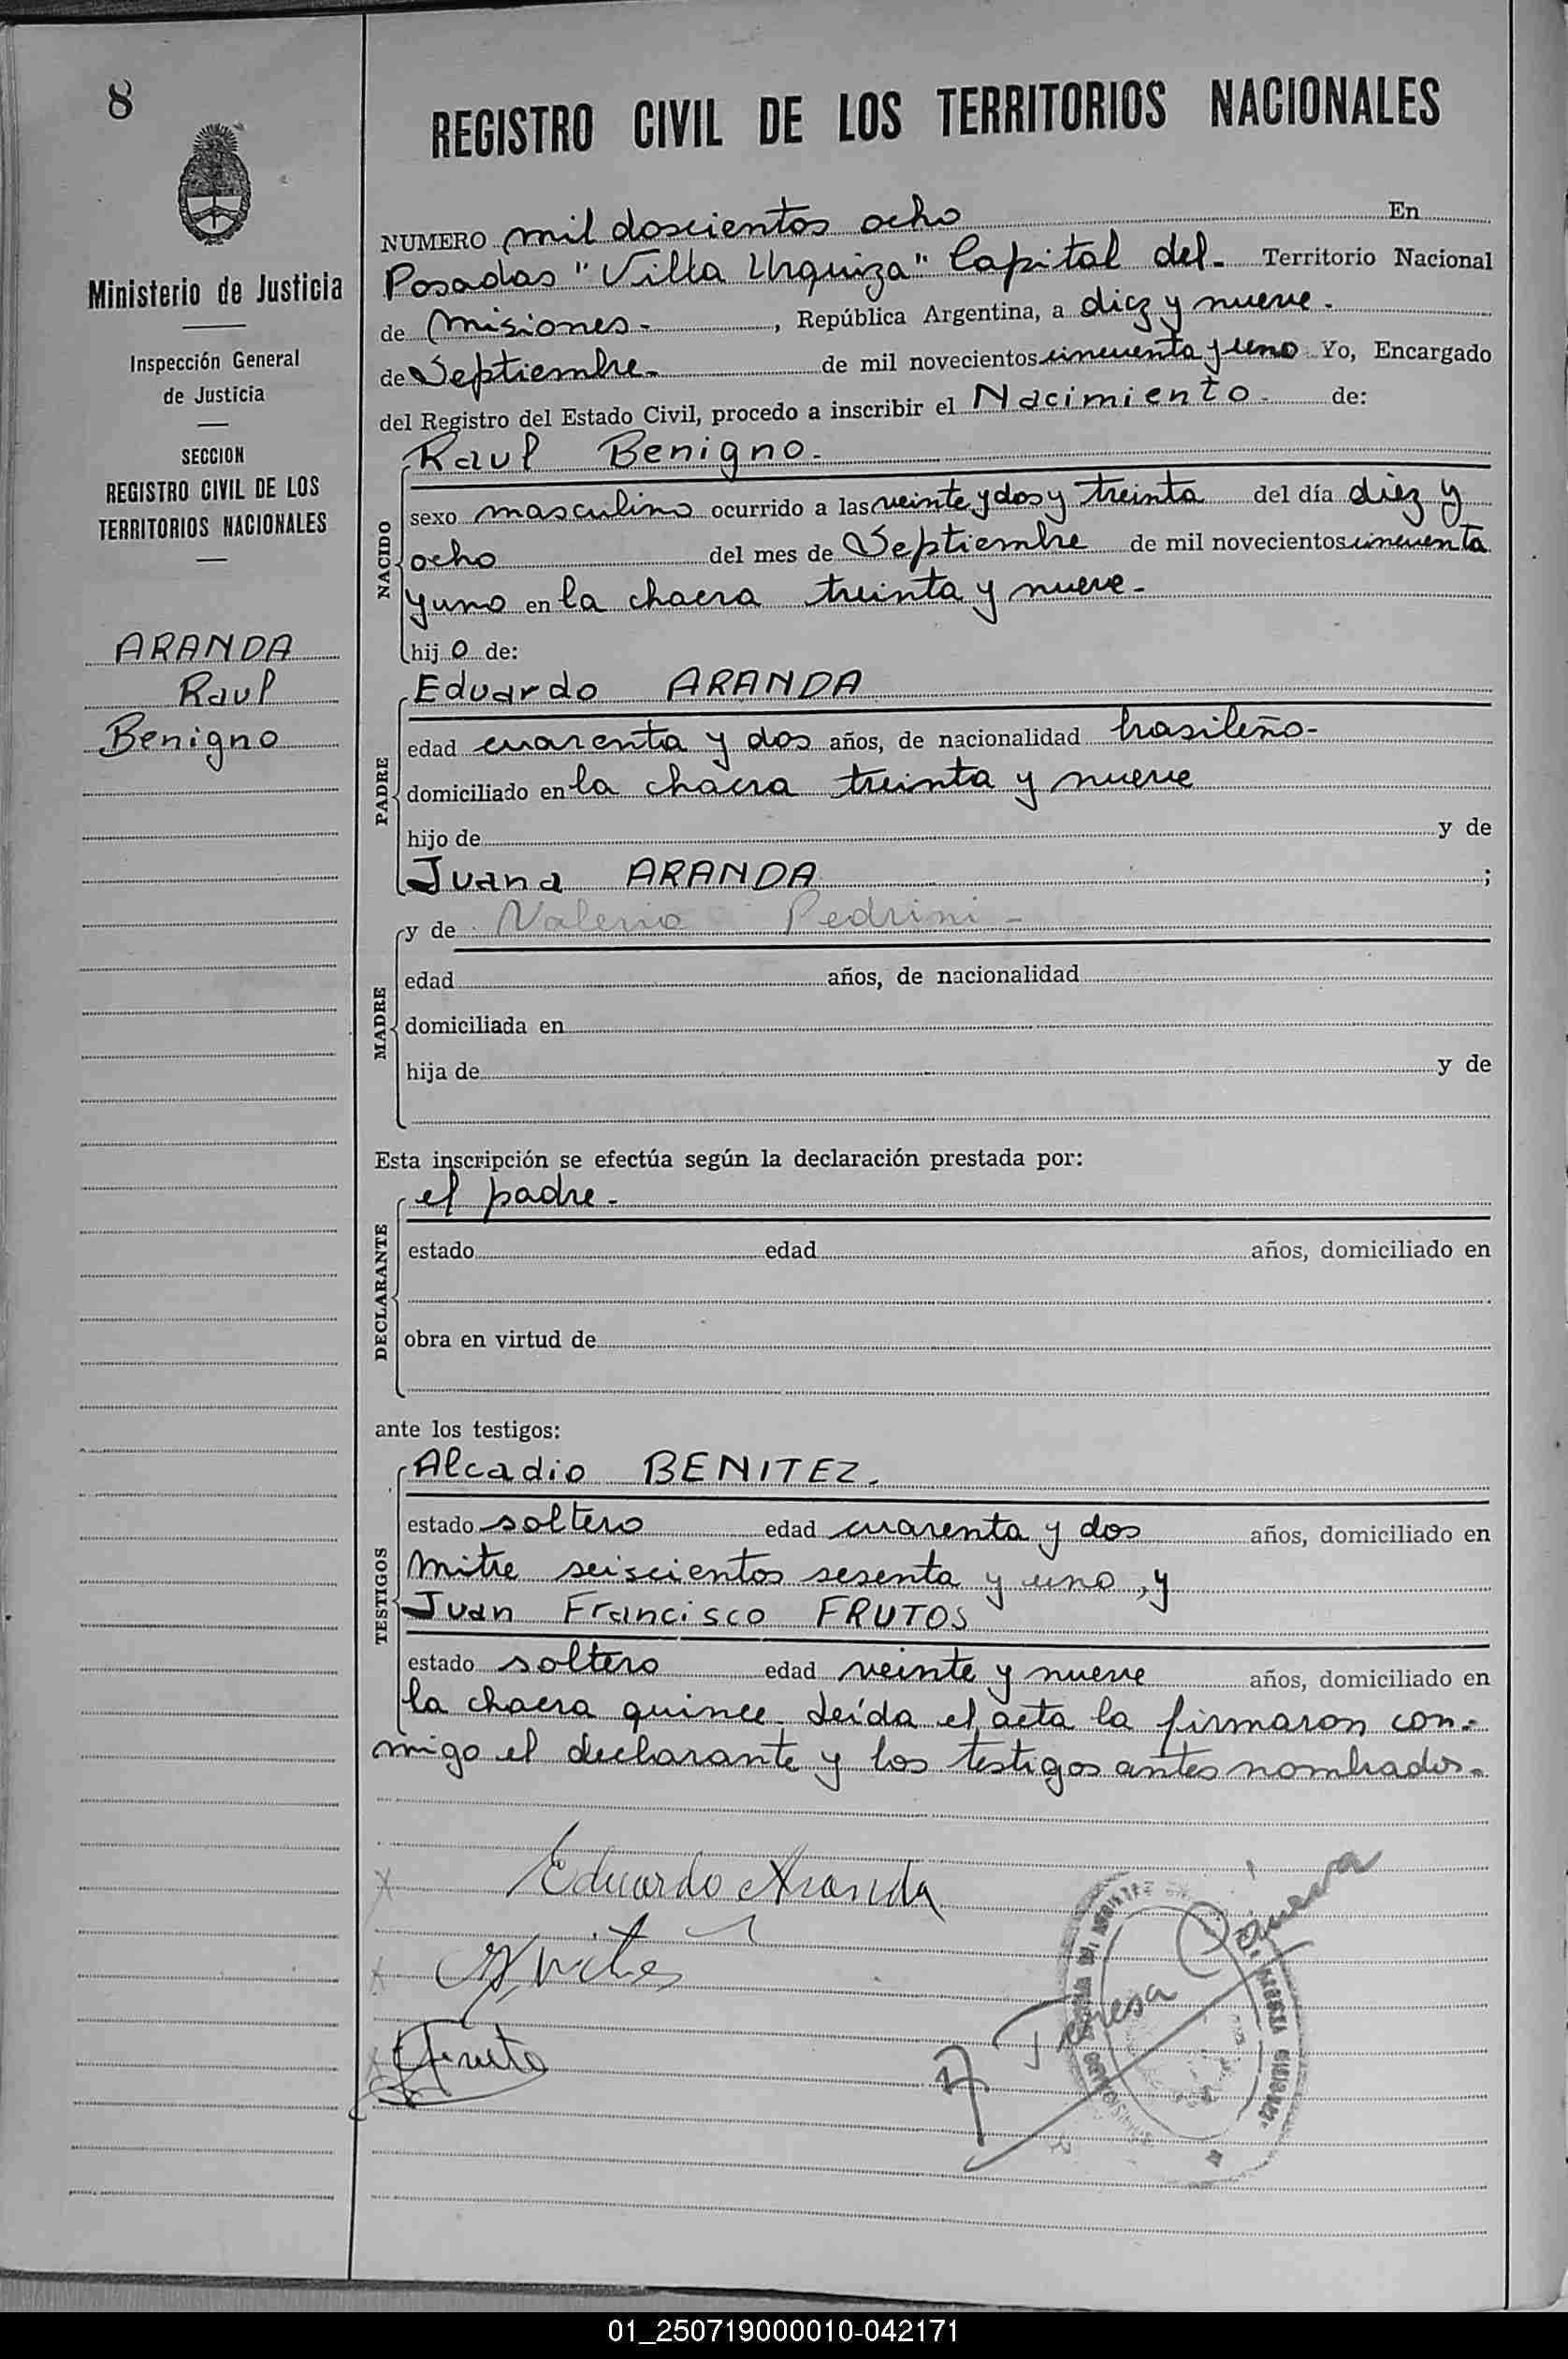 8
Ministerio de Justicia
Inspección General
de Justicia
SECCION
REGISTRO CIVIL DE LOS
TERRITORIOS NACIONALES
ARANDA
Raul
Benigno
REGISTRO CIVIL DE LOS TERRITORIOS NACIONALES
NUMERO mil doscientos ocho En
Posadas "Villa Urquiza" Capital del- Territorio Nacional
de Misiones-, República Argentina, a diez y nueve-
de Septiembre- de mil novecientos cincuenta y uno Yo, Encargado
del Registro del Estado Civil, procedo a inscribir el Nacimiento- de:
NACIDO
Raul Benigno-
sexo masculino ocurrido a las veinte y dos y treinta del día diez y
ocho del mes de Septiembre de mil novecientos cincuenta
y uno en la chacra treinta y nueve-
hijo de:
PADRE
Eduardo ARANDA
edad cuarenta y dos años, de nacionalidad brasileño-
domiciliado en la chacra treinta y nueve
hijo de y de
Juana ARANDA ;
MADRE
y de Valeria Pedrini-
edad años, de nacionalidad
domiciliada en
hija de y de
Esta inscripción se efectúa según la declaración prestada por:
DECLARANTE
el padre-
estado edad años, domiciliado en
obra en virtud de
ante los testigos:
TESTIGOS
Alcadio BENITEZ.
estado soltero edad cuarenta y dos años, domiciliado en
Mitre seiscientos sesenta y uno, y
Juan Francisco FRUTOS
estado soltero edad veinte y nueve años, domiciliado en
la chacra quince. Leída el acta la firmaron con-
migo el declarante y los testigos antes nombrados-
Eduardo Aranda
Teresa
01_250719000010-042171